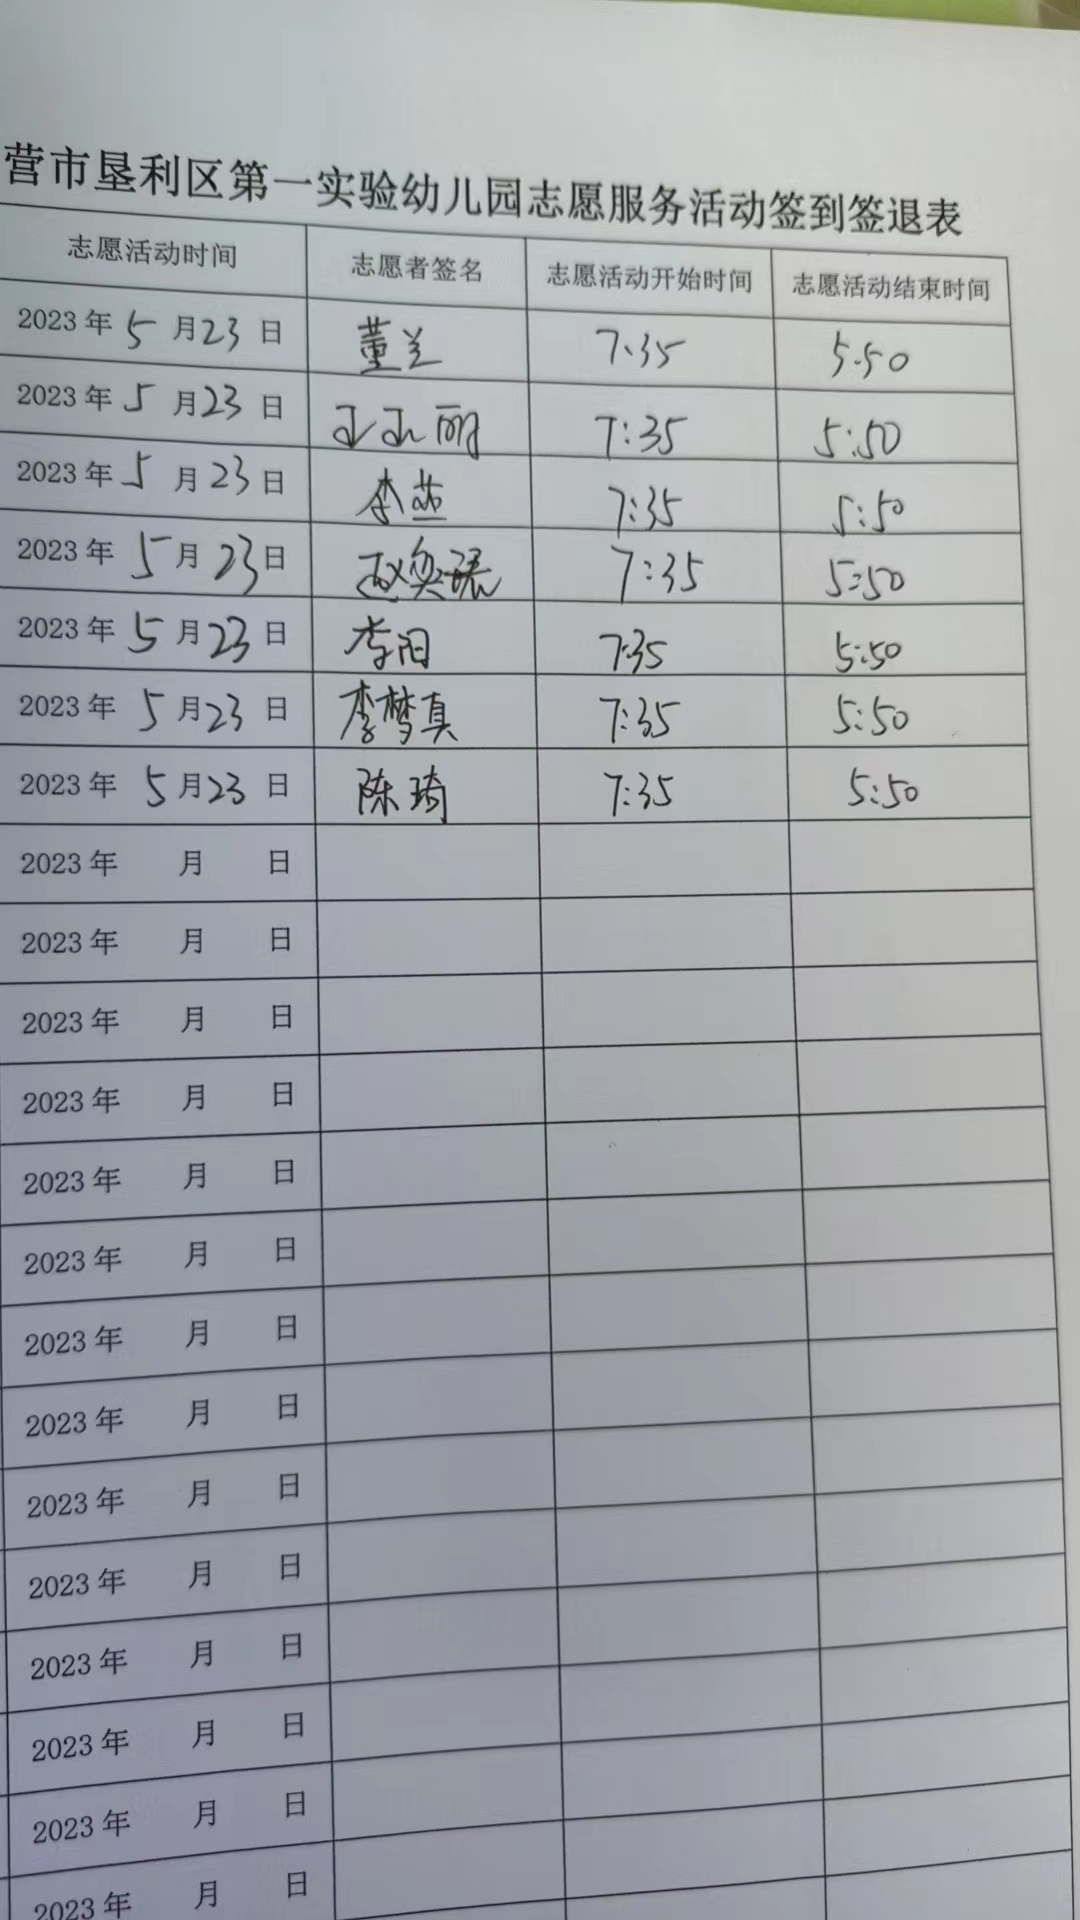 营市垦利区第一实验幼儿园志愿服务活动签到签退表
志愿活动时间 志愿者签名 志愿活动开始时间 志愿活动结束时间
2023年5月23日 董兰 7:35 5:50
2023年5月23日 7:35 5:50
2023年5月23日 李燕 7:35 5:50
2023年5月23日 7:35 5:50
2023年5月23日 李阳 7:35 5:50
2023年5月23日 李梦真 7:35 5:50
2023年5月23日 陈琦 7:35 5:50
2023年 月 日
2023年 月 日
2023年 月 日
2023年 月 日
2023年 月 日
2023年 月 日
2023年 月 日
2023年 月 日
2023年 月 日
2023年 月 日
2023年 月 日
2023年 月 日
2023年 月 日
2023年 月 日